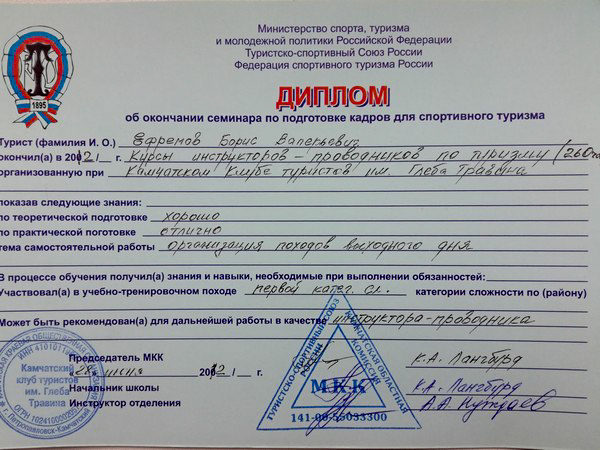 Министерство спорта, туризма
и молодежной политики Российской Федерации
Туристско-спортивный Союз России
Федерация спортивного туризма России
1895
ДИПЛОМ
об окончании семинара по подготовке кадров для спортивного туризма
Турист (фамилия И. О.) Ефремов Борис Валерьевич
окончил(а) в 20012/ г. Курсы инструкторов-проводников по туризму /260
организованную при Камчатском Клубе туристов им. Глеба Травина
показав следующие знания:
по теоретической подготовке хорошо
по практической поготовке отлично
тема самостоятельной работы организация походов выходного дня
В процессе обучения получил(а) знания и навыки, необходимые при выполнении обязанностей:
Участвовал(а) в учебно-тренировочном походе первой катег. сл. категории сложности по (району)
Может быть рекомендован(а) для дальнейшей работы в качестве инструктора-проводника
Председатель МКК К.А. Лангбурд
«28» июня 20012/ г.
Начальник школы К.А. Лангбурд
Инструктор отделения А.А.
Камчатский
клуб туристов
им. Глеба
Травина
г. Петропавловск-Камчатский
ТУРИСТСКО-СПОРТИВНЫЙ СОЮЗ РОССИИ
КАМЧАТСКАЯ ОБЛАСТНАЯ
КОМИССИЯ
МКК
141-00-55033300